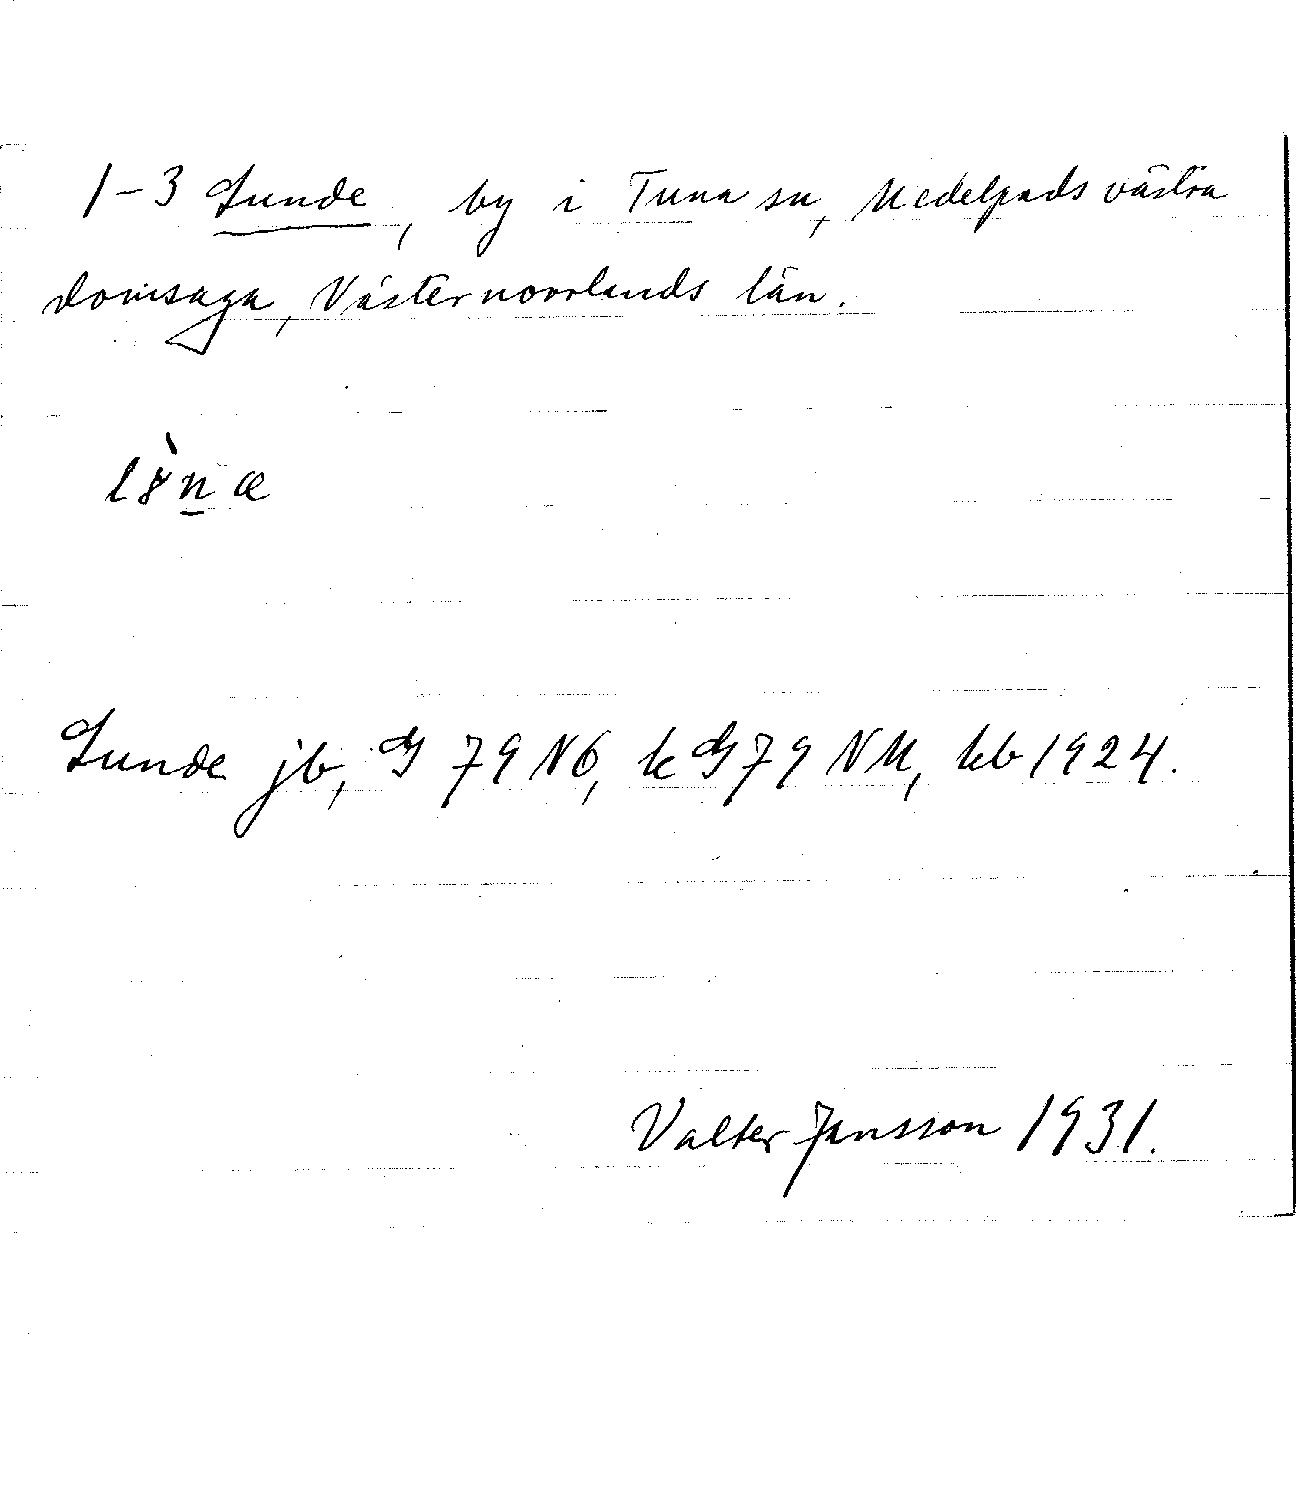 1-3 Lunde, by i Tuna sn, Medelpads västra
domsaga, Västernorrlands län.
Lunde jb, G 79 NÖ, kG 79 NM, kb 1924.
Valter Jansson 1931.